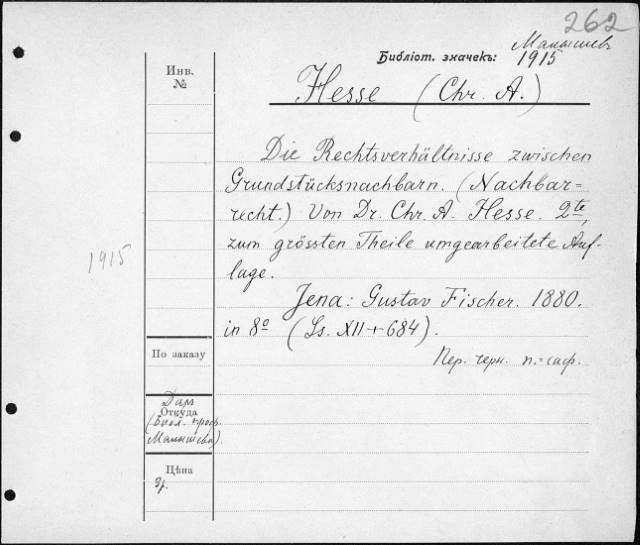 262
Малышев
Библіот. значекъ: 1915
Инв.
№
Hesse (Chr. A.)
Die Rechtsverhältnisse zwischen
Grundstücksnachbarn. (Nachbar=
recht.) Von Dr. Chr. A. Hesse. 2te,
zum grössten Theile umgearbeitete Auf-
lage.
1915
Jena: Gustav Fischer. 1880.
in 8º (Ss. XII+684).
По заказу
Пер. черн. п.=саф.
Даръ
Откуда
(Библ. проф.
Малышева).
Цѣна